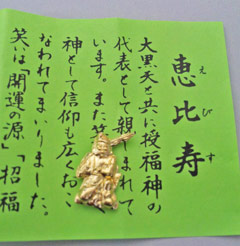 恵比寿
えびす
大黒天と共に授福神の
代表として親しまれて
います。また笑
神として信仰も広くおこ
なわれてまいりました。
笑いは「開運の源」「招福